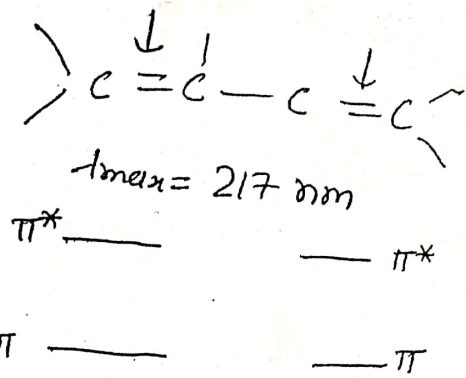 C = C — C = C
λmax = 217 nm
π* π*
π π